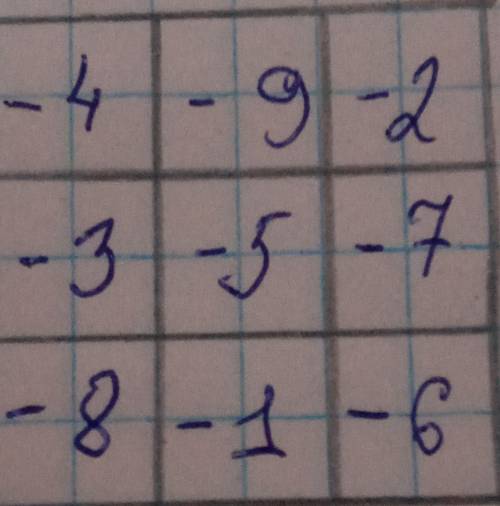 -4 -9 -2
-3 -5 -7
-8 -1 -6